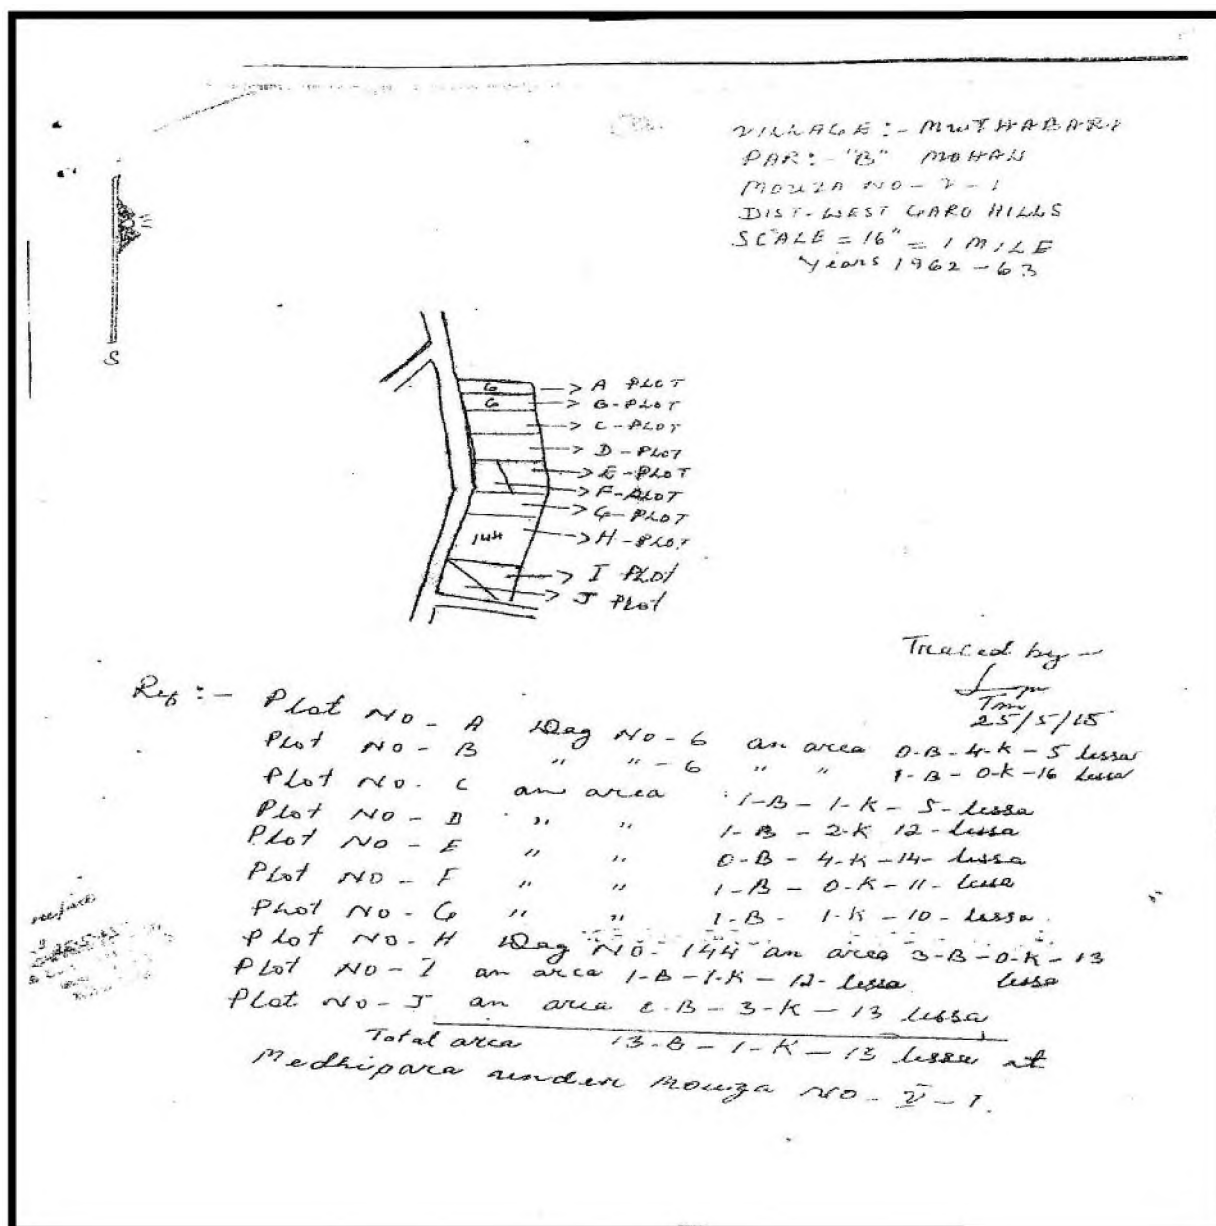 VILLAGE :- MUTHABARI
PAR :- "B" MOHAN
MOUZA NO - V - 1
DIST - WEST GARO HILLS
SCALE = 16" = 1 MILE
Years 1962 - 63
S
6 → A PLOT
6 → B-PLOT
→ C-PLOT
→ D-PLOT
→ E-PLOT
→ F-PLOT
→ G-PLOT
144 → H-PLOT
→ I PLOT
→ J PLOT
Traced by -
25/5/15
Ref :- Plot NO - A Dag NO - 6 an area 0-B-4-K-5 lessa
Plot NO - B " " - 6 " " 1-B-0-K-16 lessa
Plot NO - C an area 1-B-1-K-5-lessa
Plot NO - D " " 1-B-2-K 12-lessa
Plot NO - E " " 0-B-4-K-14-lessa
Plot NO - F " " 1-B-0-K-11-lessa
Plot NO - G " " 1-B-1-K-10-lessa
Plot NO - H Dag NO - 144 an area 3-B-0-K-13
lessa
Plot NO - I an area 1-B-1-K-12-lessa
Plot NO - J an area B-3-K-13 lessa
Total area 13-B-1-K-13 lessa at
Medhipara under Mouza NO - V - 1.